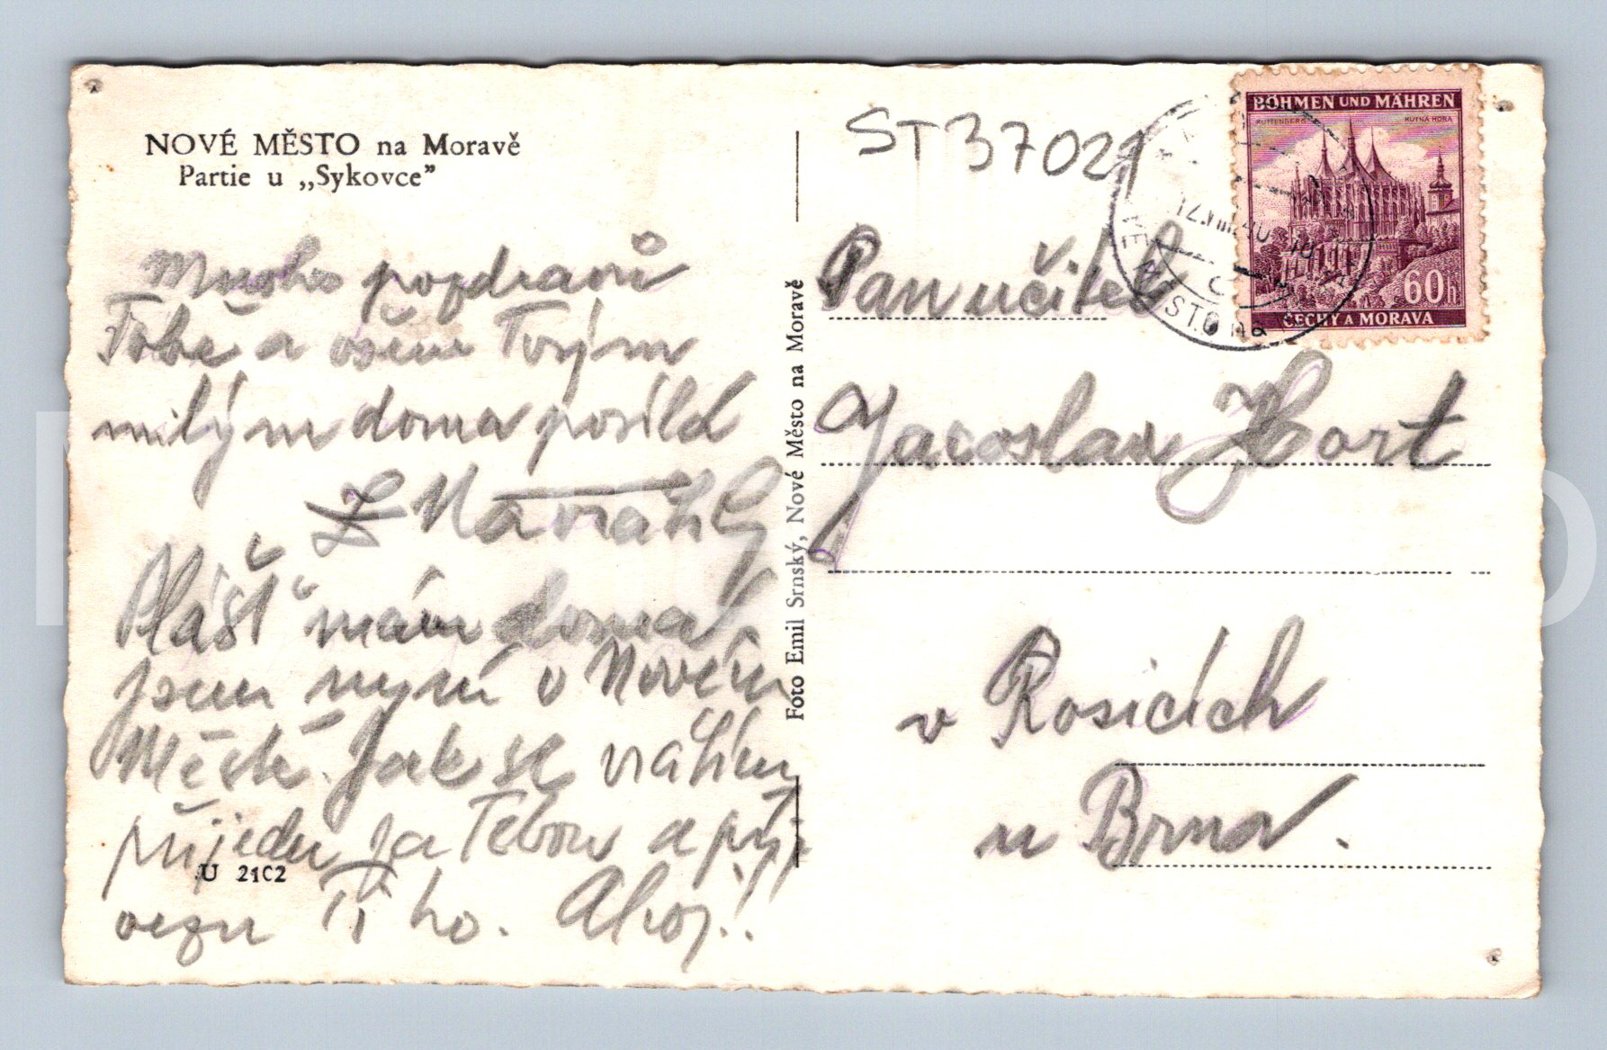 NOVÉ MĚSTO na Moravě
Partie u „Sykovce"
Mnoho pozdravů
Tobě a všem Tvým
milým doma posílá
Z Navrátil
Plášť mám doma
jsem nyní v Novém
Městě. Jak se vrátím
přijedu za Tebou a při-
vezu Ti ho. Ahoj!
U 21C2
Foto Emil Srnský, Nové Město na Moravě
ST37021
BÖHMEN UND MÄHREN
KUTTENBERG
KUTNÁ HORA
60h
ČECHY A MORAVA
12.VIII.40
Pan učitel
Jaroslav Hort
v Rosicích
u Brna.